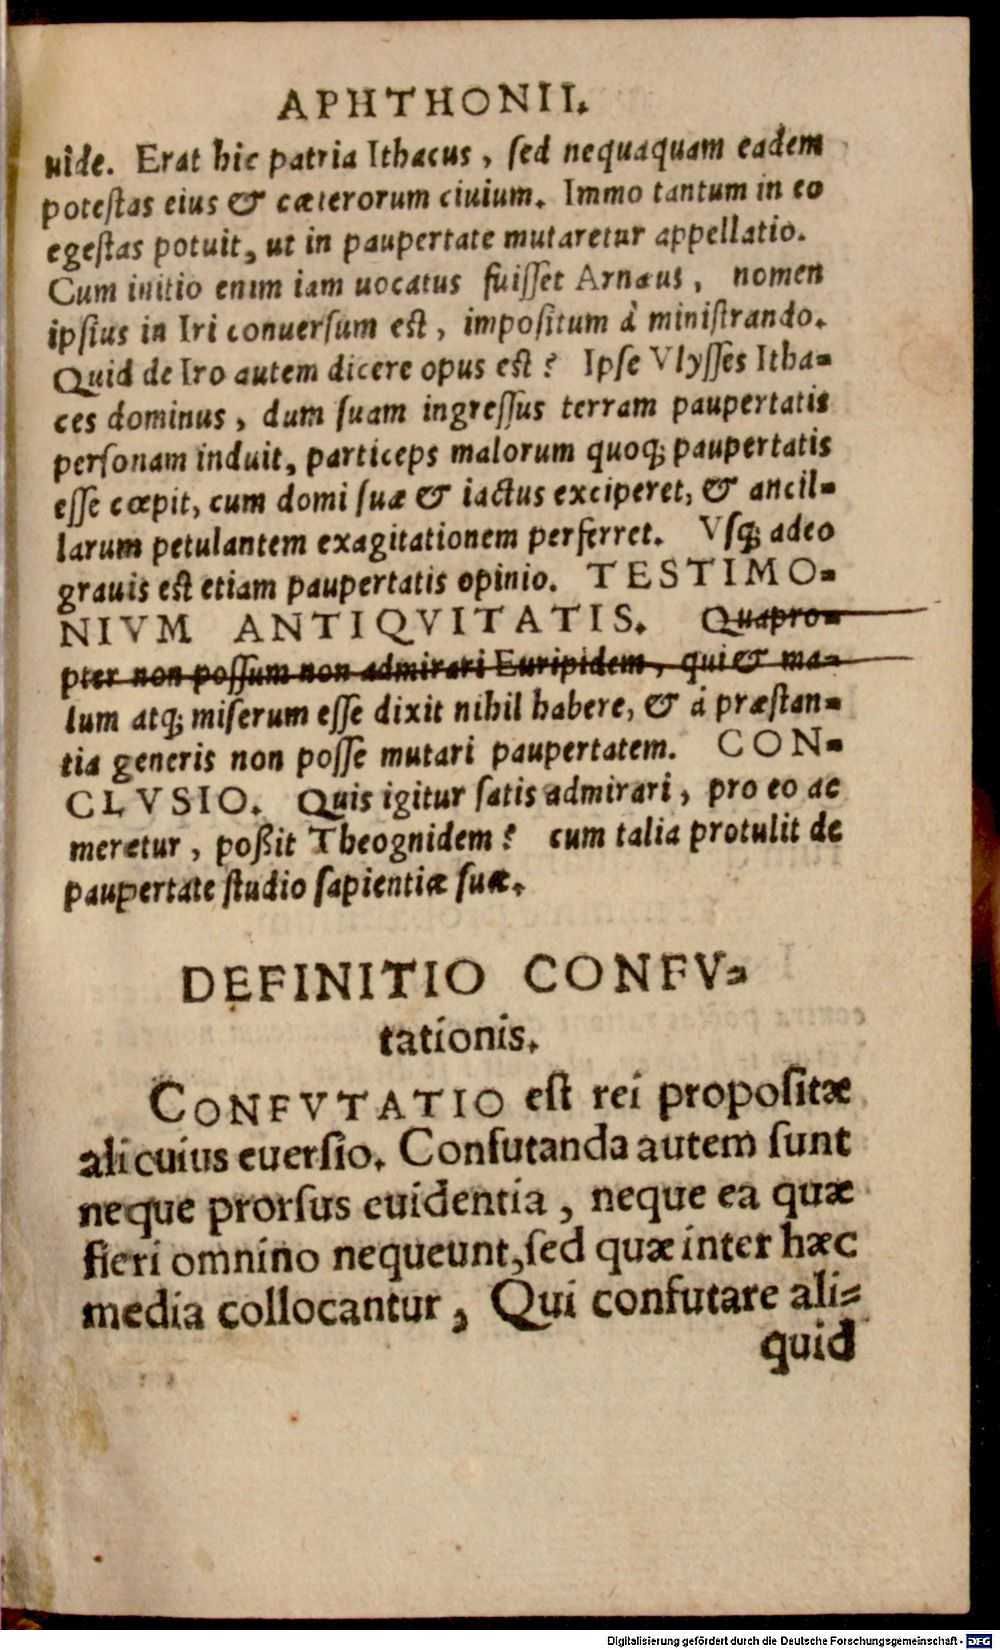 APHTHONII.
uide. Erat hic patria Ithacus, ſed nequaquam eadem
poteſtas eius & cæterorum ciuium. Immo tantum in eo
egeſtas potuit, ut in paupertate mutaretur appellatio.
Cum initio enim iam uocatus fuiſſet Arnæus, nomen
ipſius in Iri conuerſum eſt, impoſitum à miniſtrando.
Quid de Iro autem dicere opus eſt? Ipſe Vlyſſes Itha-
ces dominus, dum ſuam ingreſſus terram paupertatis
perſonam induit, particeps malorum quoq; paupertatis
eſſe cœpit, cum domi ſuæ & iactus exciperet, & ancil-
larum petulantem exagitationem perferret. Vſq; adeo
grauis eſt etiam paupertatis opinio. TESTIMO-
NIVM ANTIQVITATIS. Quapro-
pter non poſſum non admirari Euripidem, qui & ma-
lum atq; miſerum eſſe dixit nihil habere, & à præſtan-
tia generis non poſſe mutari paupertatem. CON-
CLVSIO. Quis igitur ſatis admirari, pro eo ac
meretur, poßit Theognidem? cum talia protulit de
paupertate ſtudio ſapientiæ ſuæ.
DEFINITIO CONFV-
tationis.
CONFVTATIO eſt rei propoſitæ
alicuius euerſio. Confutanda autem ſunt
neque prorſus euidentia, neque ea quæ
fieri omnino nequeunt, ſed quæ inter hæc
media collocantur, Qui confutare ali-
quid
Digitalisierung gefördert durch die Deutsche Forschungsgemeinschaft - DFG